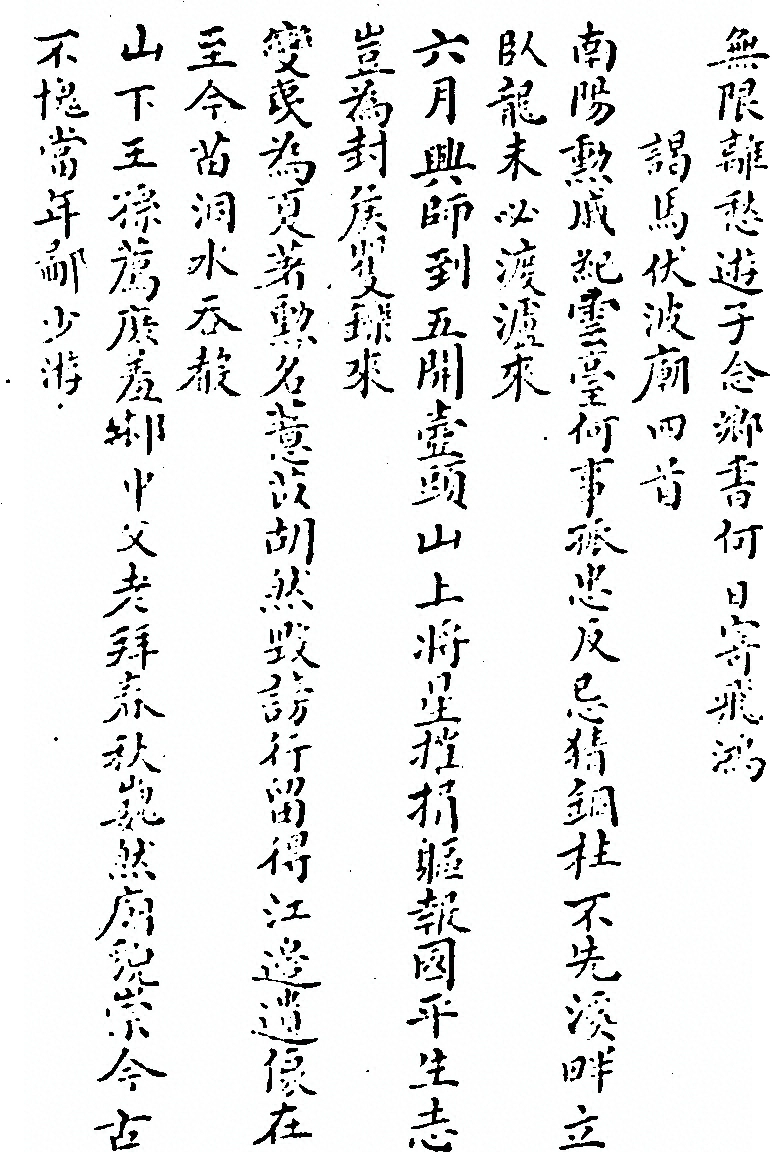 無限離愁遊子念鄉書何日寄飛鴻
謁馬伏波廟四首
南陽勲戚配雲臺何事孤忠反忌猜銅柱不先溪畔立
臥龍未必渡瀘來
六月興師到五開壺頭山上將星摧捐軀報國平生志
豈為封侯矍鑠來
變夷為夏著勲名薏苡胡然毀謗行留得江邊遺像在
至今苗洞水吞聲
山下王孫薦庶羞鄉中父老拜春秋巍然廟貌崇今古
不愧當年鄙少游